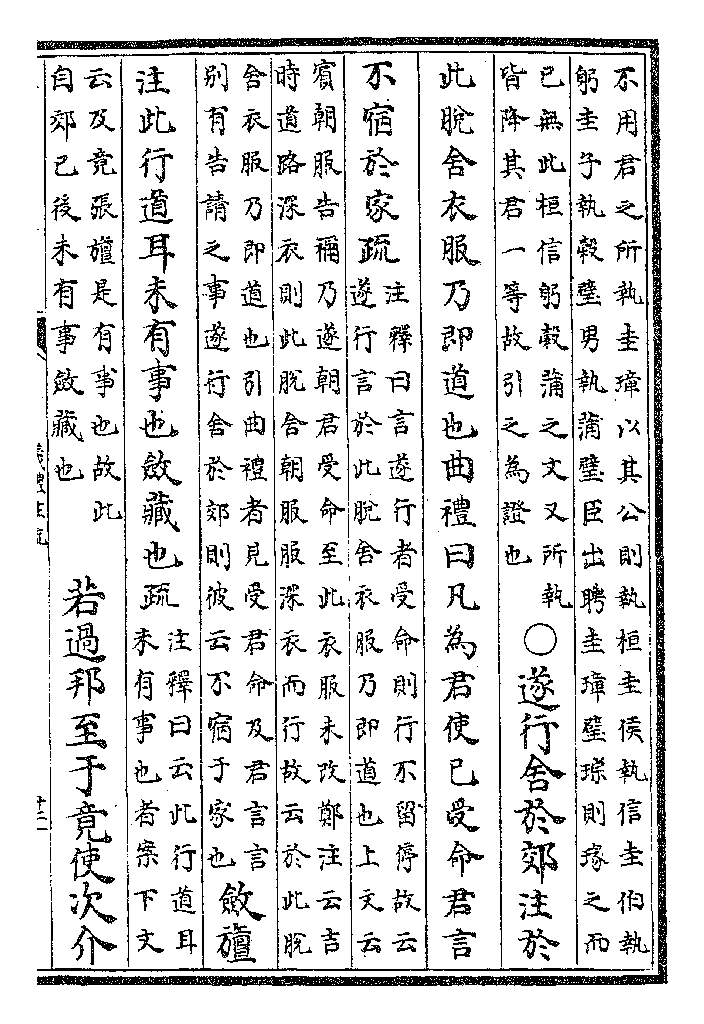 不用君之所執圭璋以其公則執桓圭侯執信圭伯執
躬圭子執穀璧男執蒲璧臣出聘圭璋璧琮則瑑之而
已無此桓信躬穀蒲之文又所執
皆降其君一等故引之為證也
○遂行舍於郊注於
此脫舍衣服乃即道也曲禮曰凡為君使已受命君言
不宿於家疏
注釋曰言遂行者受命則行不留停故云
遂行言於此脫舍衣服乃即道也上文云
賓朝服告禰乃遂朝君受命至此衣服未改鄭注云吉
時道路深衣則此脫舍朝服服深衣而行故云於此脫
舍衣服乃即道也引曲禮者見受君命及君言言
別有告請之事遂行舍於郊則彼云不宿于家也
斂旜
注此行道耳未有事也斂藏也疏
注釋曰云此行道耳
未有事也者案下文
云及竟張旜是有事也故此
自郊已後未有事斂藏也
若過邦至于竟使次介